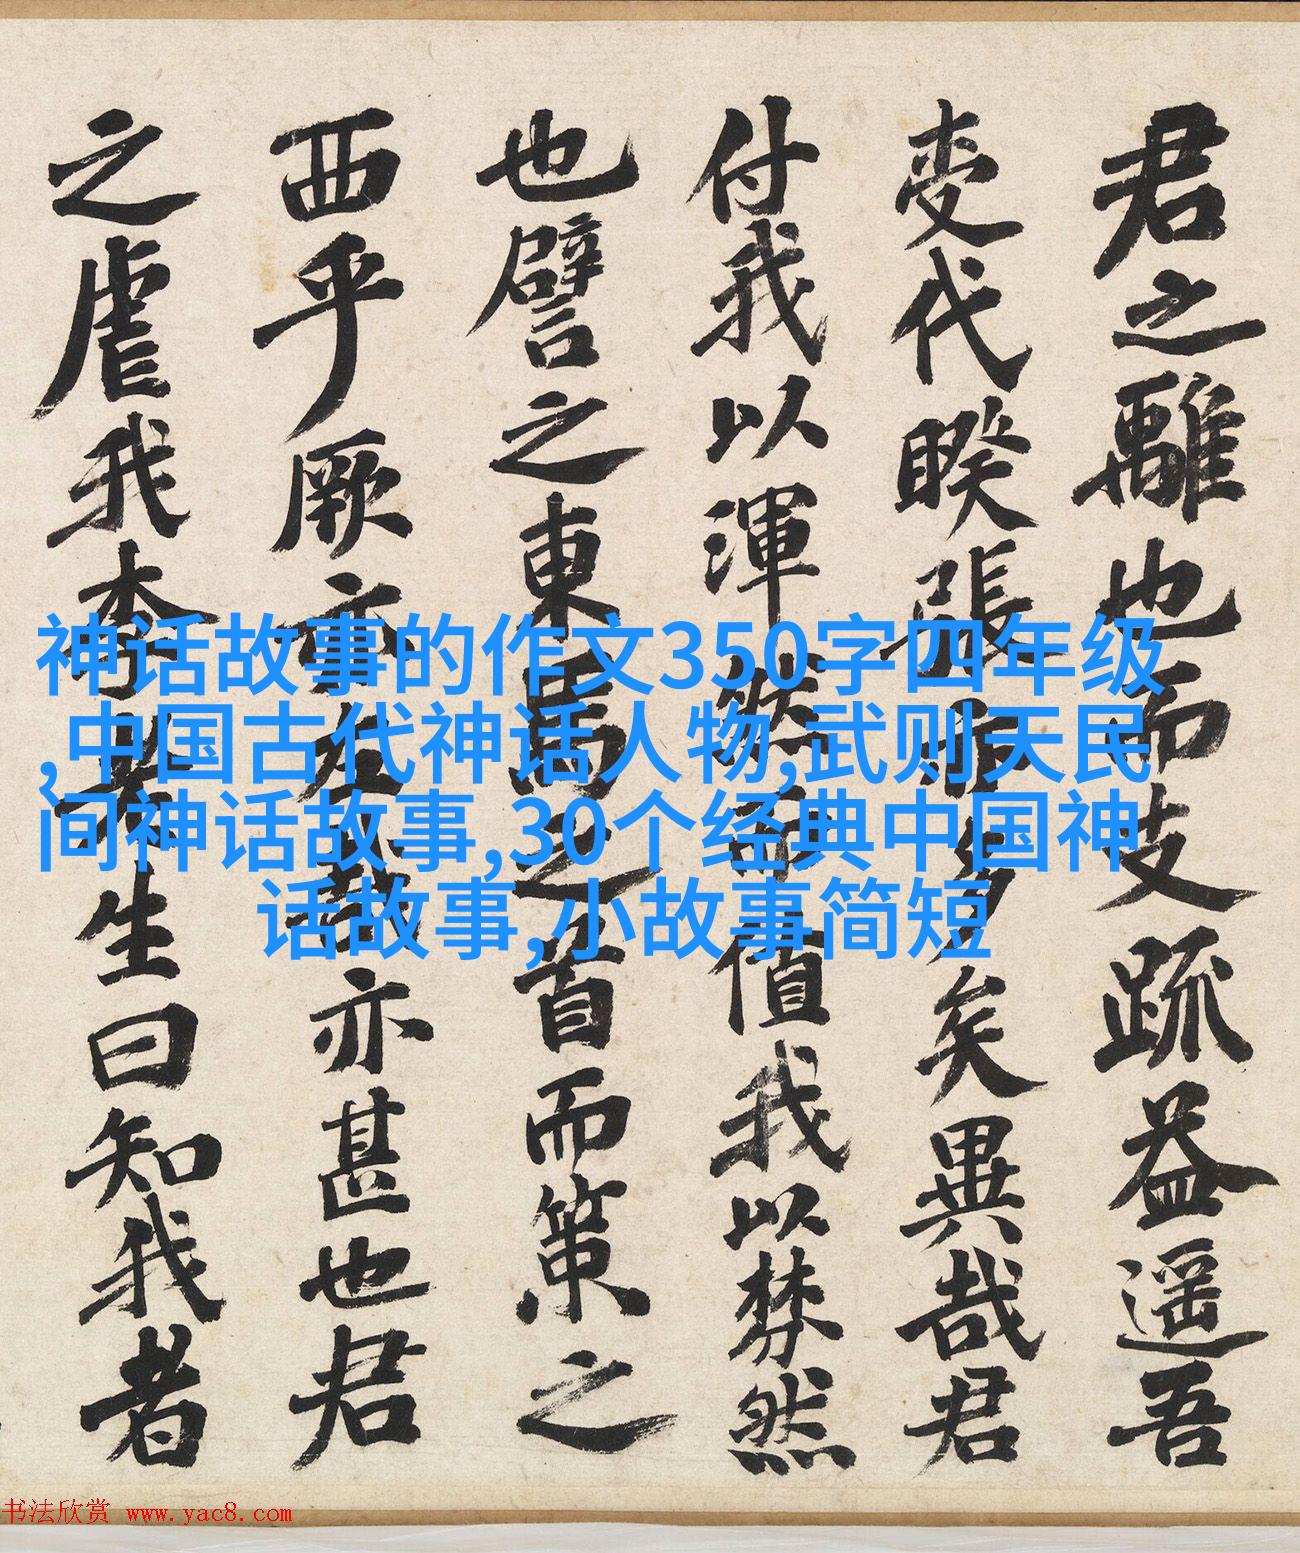 君之離也而支疏益遥吾
代睽張多矣異哉君
付我以渾然而值我以棼然
也譬之東馬之首而策之
西乎厥亦左哉亦甚也君
之虐我生曰知我者
神话故事的作文350字四年级
,中国古代神话人物,武则天民
间神话故事,30个经典中国神
话故事,小故事简短
书法欣赏 www.yac8.com